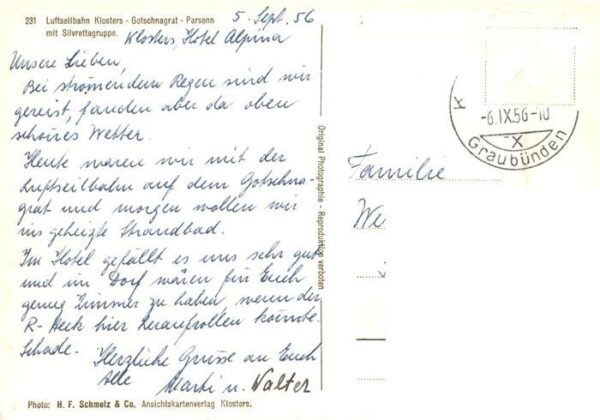 231 Luftseilbahn Klosters - Gotschnagrat - Parsenn
mit Silvrettagruppe.
5. Sept. 56
Klosters, Hotel Alpina
Unsere Lieben,
Bei strömendem Regen sind wir
gereist, fanden aber da oben
schönes Wetter.
Heute waren wir mit der
Luftseilbahn auf dem Gotschna-
grat und morgen wollen wir
ins geheizte Strandbad.
Im Hotel gefällt es uns sehr gut
und im Dorf wären für Euch
genug Zimmer zu haben, wenn der
R- hier heraufrollen könnte.
Schade. Herzliche Grüsse an Euch
Alle
u. Walter
Photo: H. F. Schmelz & Co, Ansichtskartenverlag Klosters.
Original Photographie - Reproduktion verboten
K
-6.IX.56-10
X
Graubünden
Familie
We